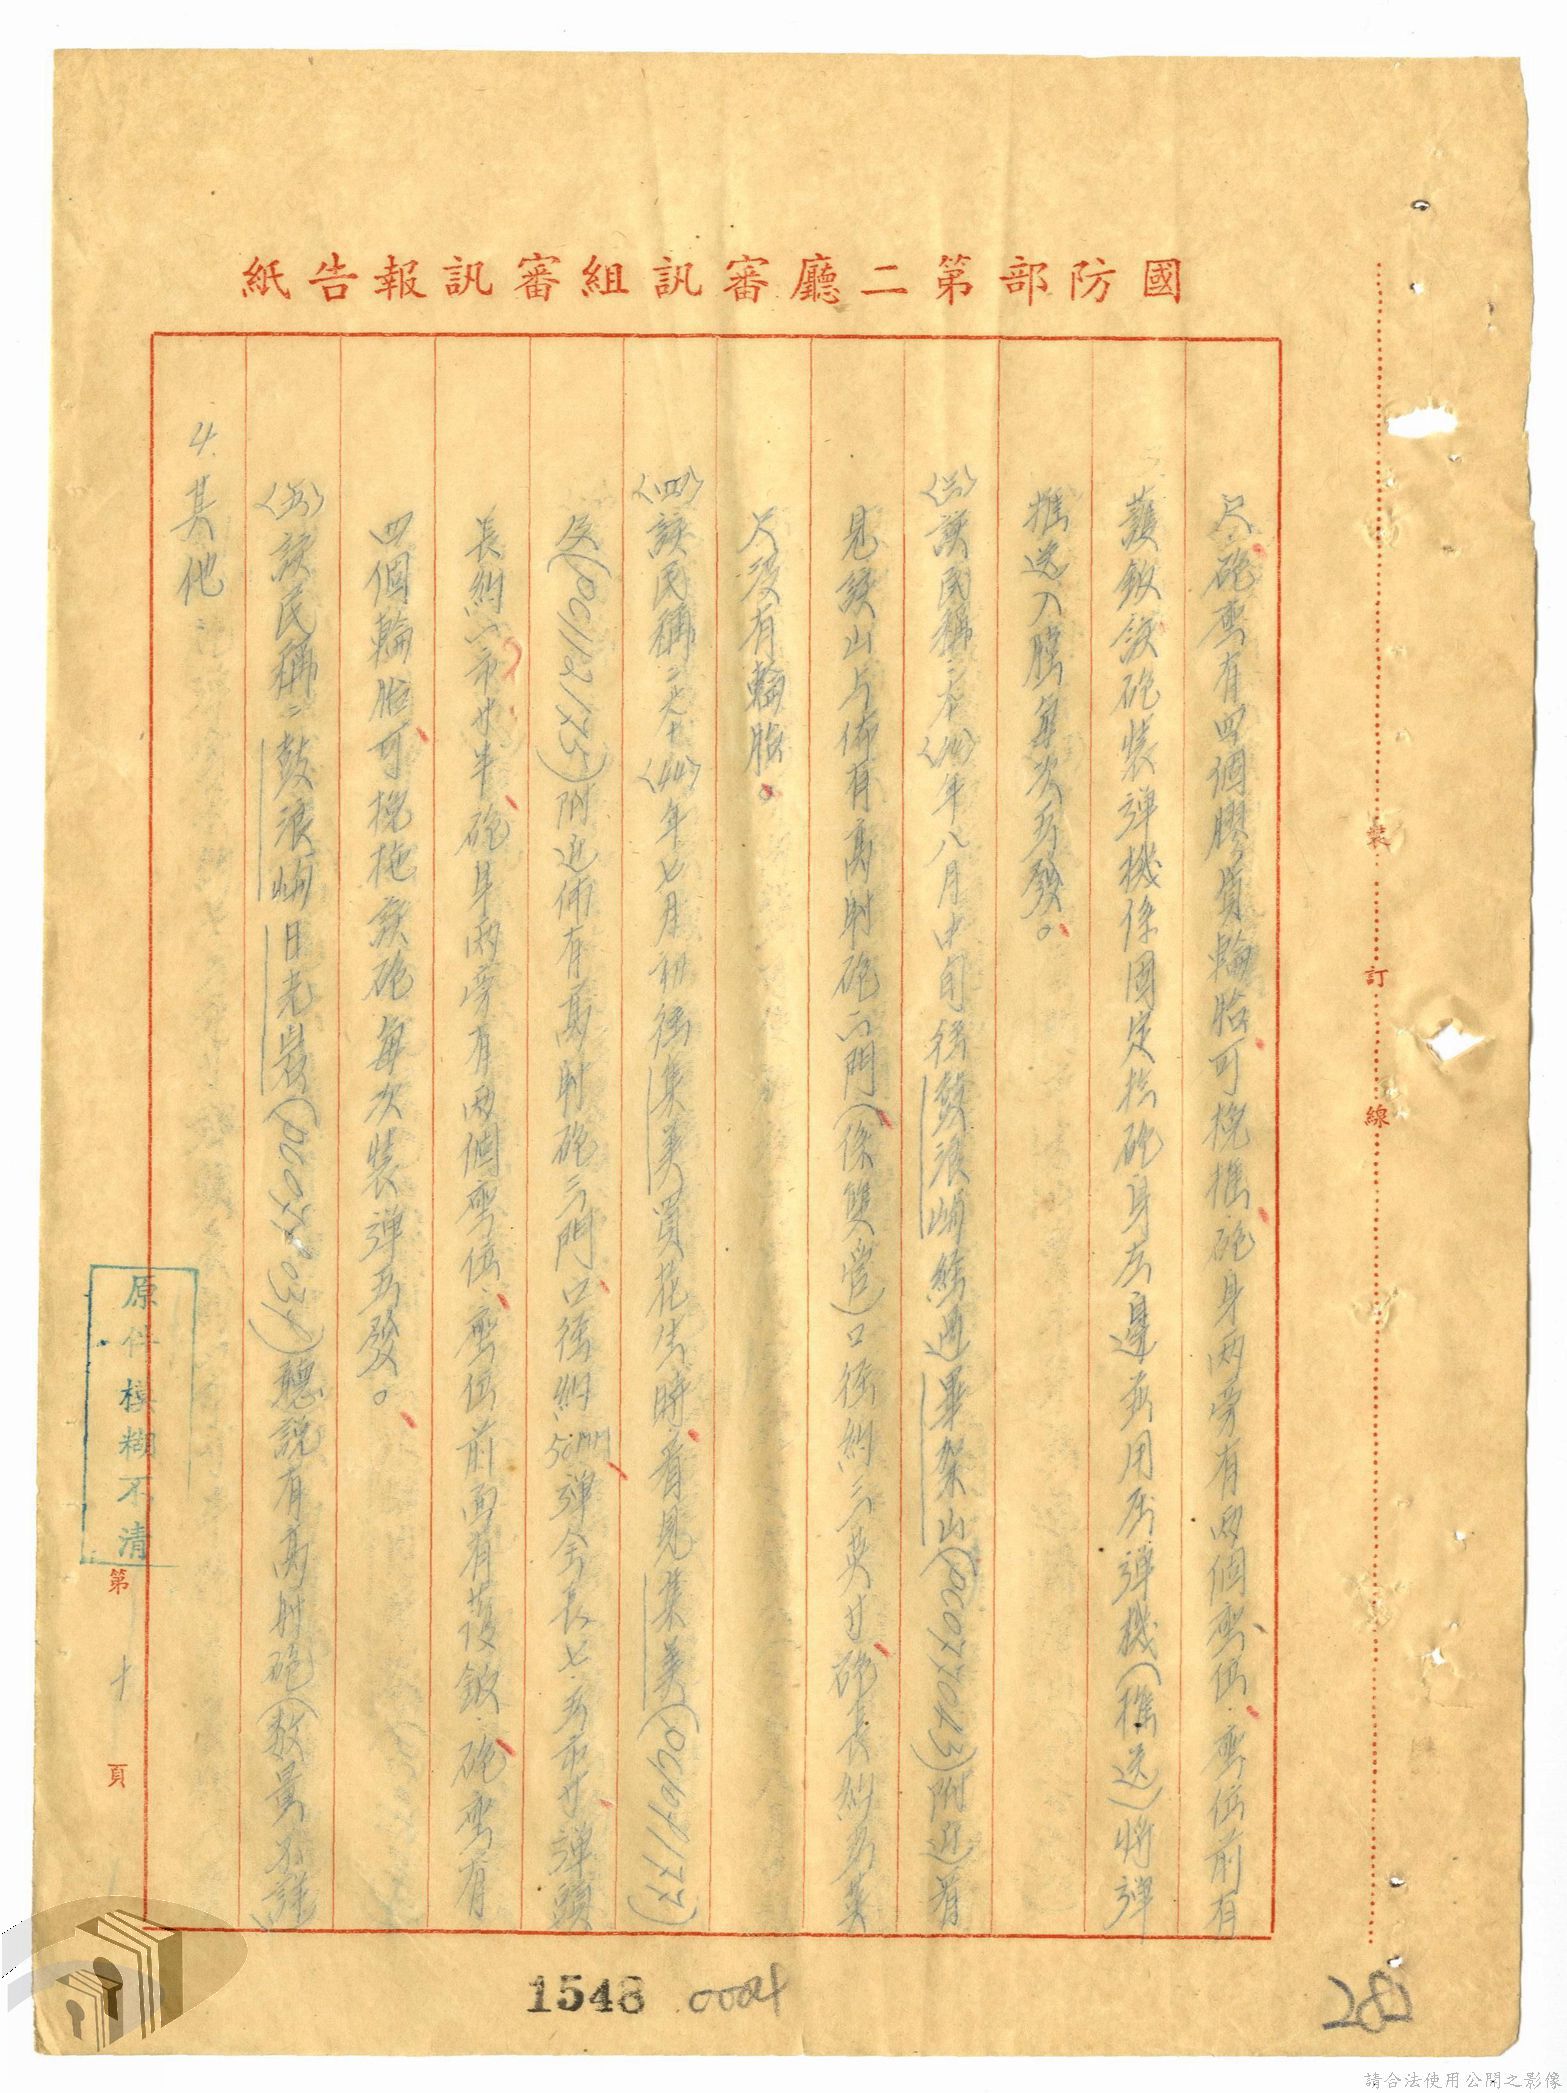 國防部第二廳審訊組審訊報告紙
尺、砲架有四個膠質輪胎可挽推、砲身兩旁有兩個座位、座位前有
護鈑該砲裝彈機係固定於砲身左邊 用 彈機(推送)將彈
推送入膛每次五發。
〈三〉該民稱: 年八月中旬後鼓浪嶼經過畢架山( )附近看
見該山 佈有高射砲 門(係雙管)口徑約三英寸砲長約五英
尺沒有輪胎。
〈四〉該民稱: 〈44〉年七月初往集美買花生時、看見集美( 1177)
(PC112175)附近佈有高射砲三門口徑約50MM彈全長七.五市寸彈頭
長約 市寸半、砲身兩旁有兩個座位、座位前面有護鈑、砲座有
四個輪胎可挽拖該砲每次裝彈五發。
〈五〉該民稱:鼓浪嶼日光巖( )聽說有高射砲(數量不詳)
4.其他
裝 訂 線
原件模糊不清
第 十 頁
1546 0004
282
請合法使用公開之影像